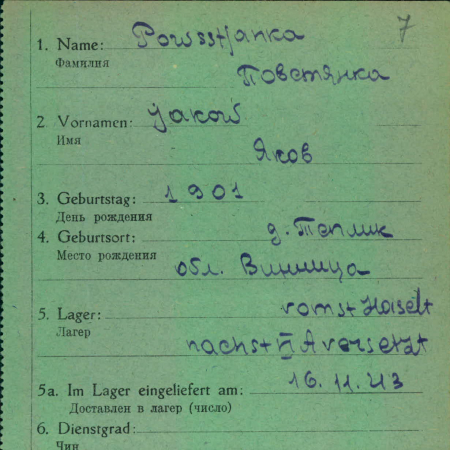 7
1. Name: Powsstjanka
Фамилия
Повстянка
2 Vornamen: Jakow
Имя
Яков
3. Geburtstag: 1901
День рождения
4. Geburtsort: д. Теплик
Место рождения
обл. Винница
5. Lager: vomst Haselt
Лагерь
nachst VI A versetzt
5a. Im Lager eingeliefert am: 16.11.43
Доставлен в лагерь (число)
6. Dienstgrad:
Чин